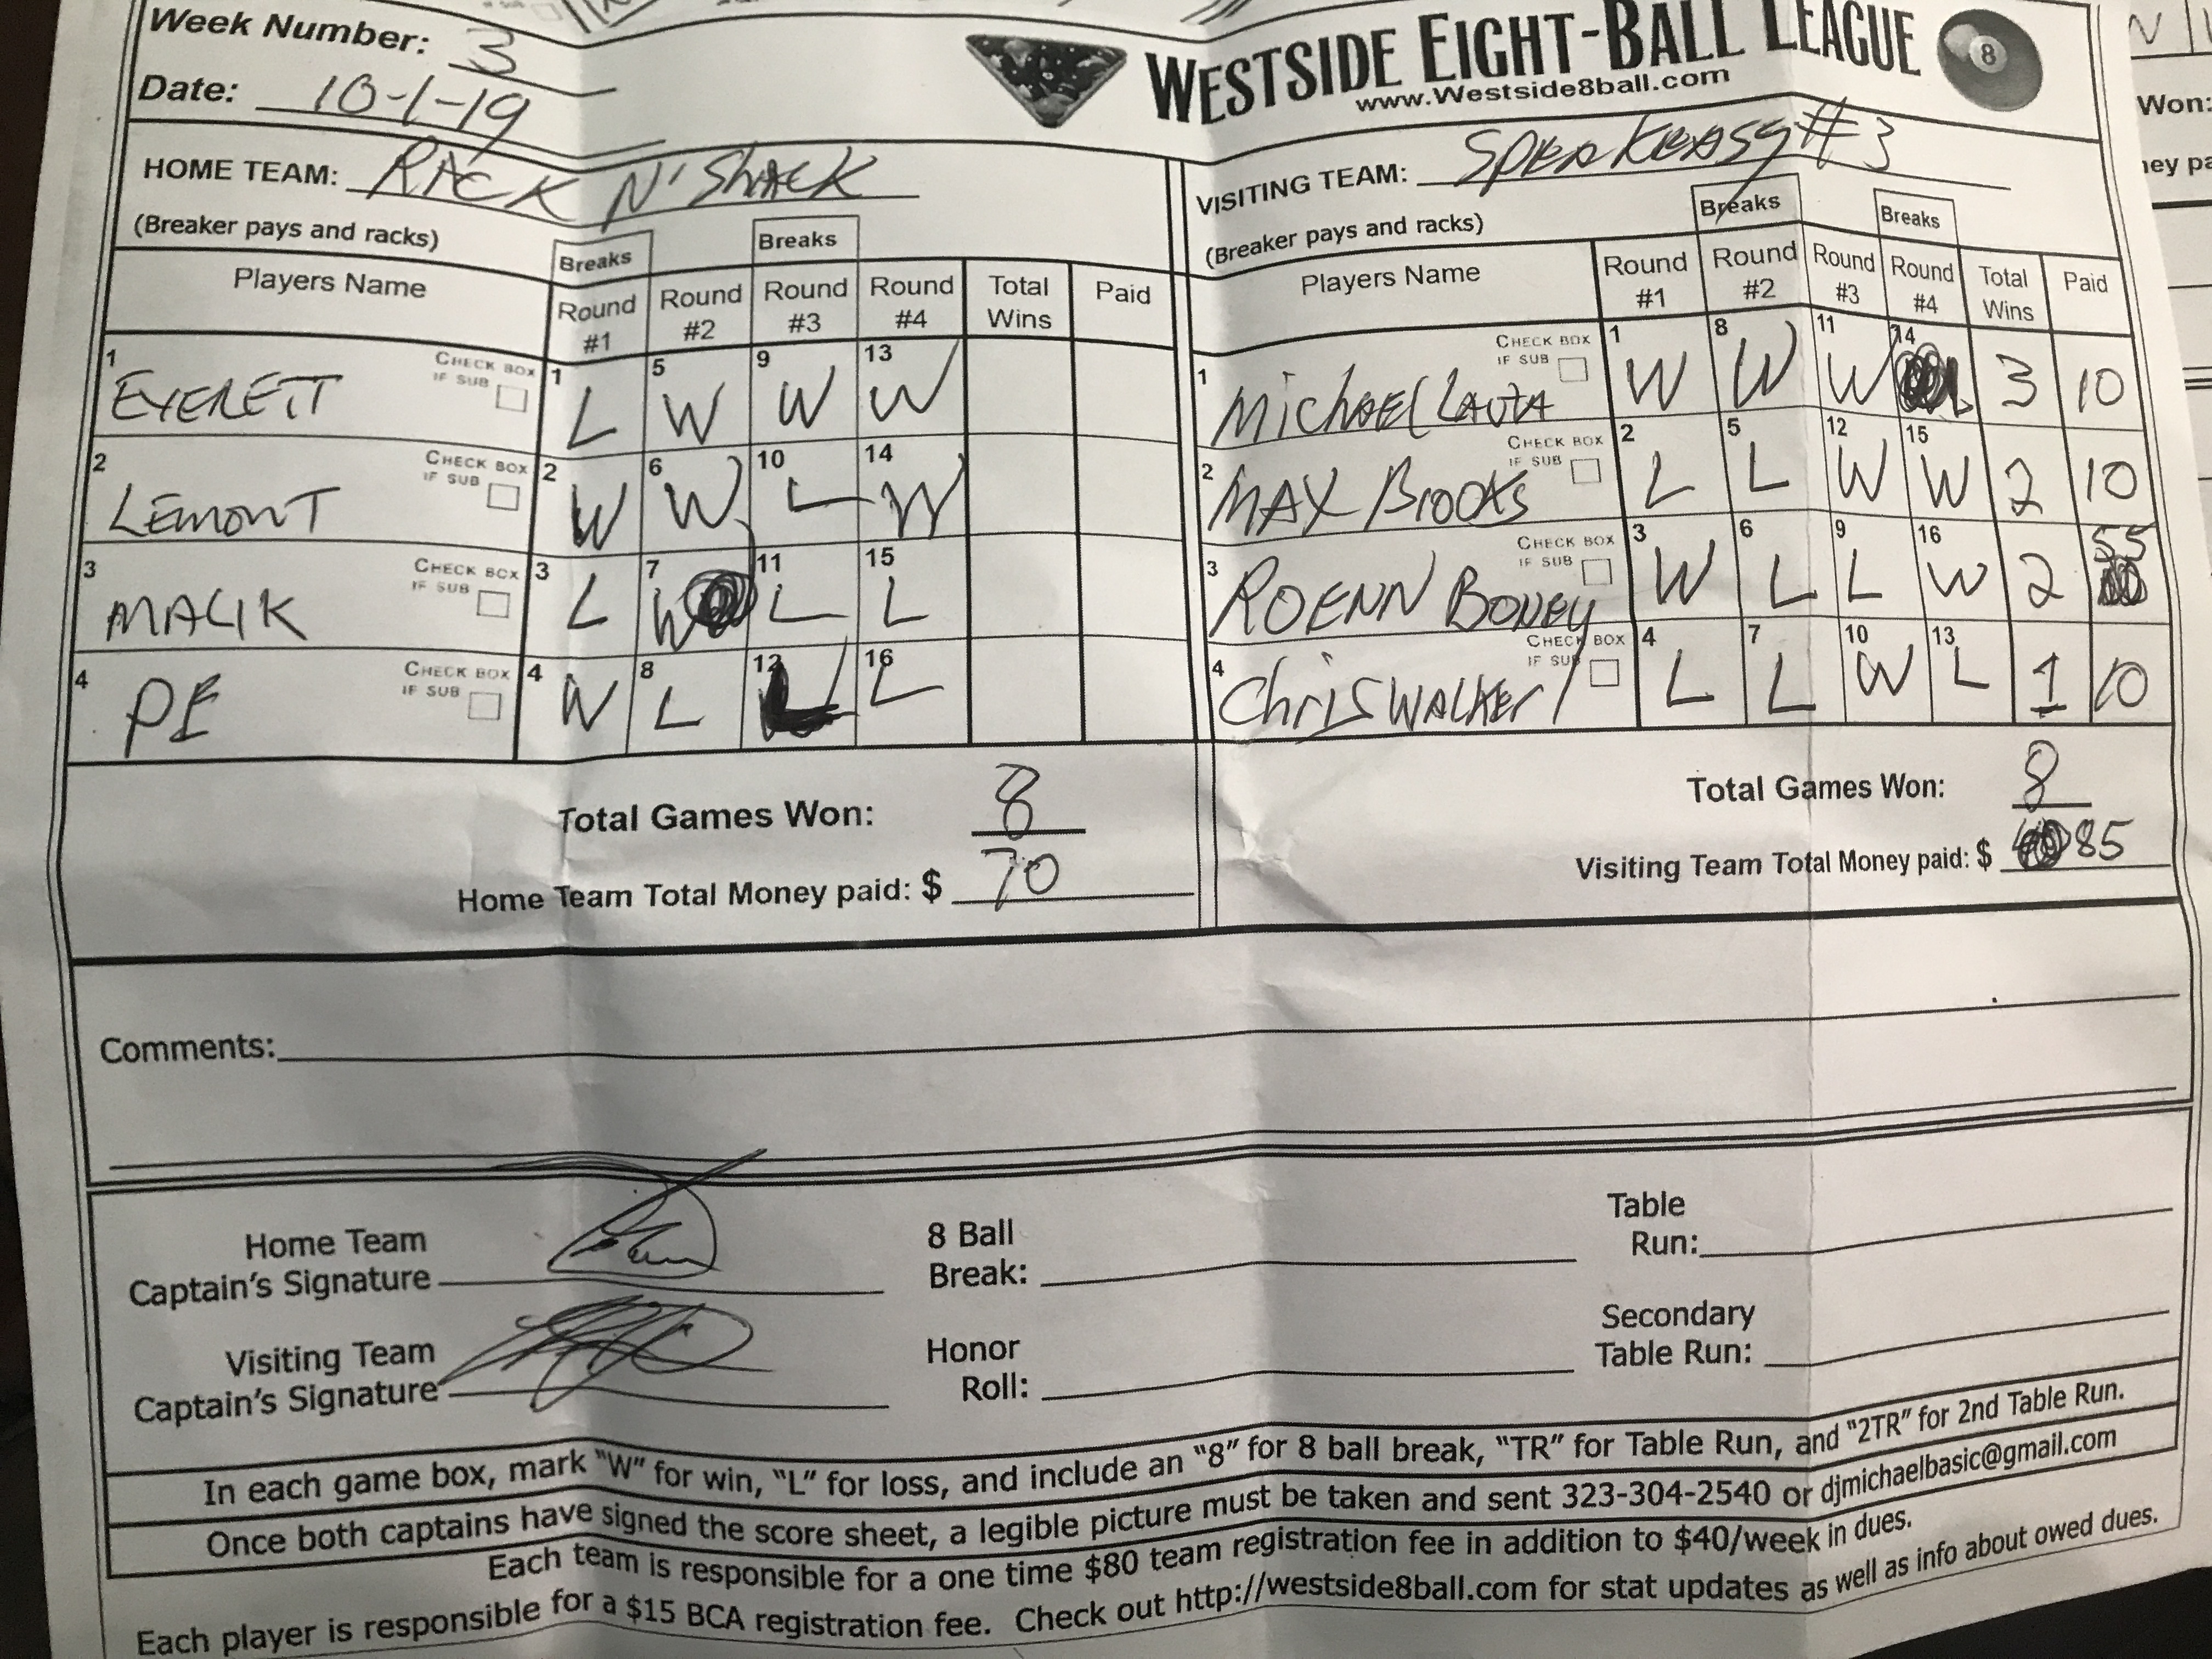 Week Number: 3
Date: 10-1-19
WESTSIDE EIGHT-BALL LEAGUE
www.Westside8ball.com
8
HOME TEAM: RACK N' SHACK
(Breaker pays and racks)
Breaks
Breaks
Players Name Round #1 Round #2 Round #3 Round #4 Total Wins Paid
1 EVERETT CHECK BOX IF SUB 1 L 5 W 9 W 13 W
2 LEMONT CHECK BOX IF SUB 2 W 6 W 10 L 14 W
3 MALIK CHECK BOX IF SUB 3 L 7 W 11 L 15 L
4 PE CHECK BOX IF SUB 4 W 8 L 12 L 16 L
Total Games Won: 8
Home Team Total Money paid: $ 70
VISITING TEAM: SPEAKEASY #3
(Breaker pays and racks)
Breaks
Breaks
Players Name Round #1 Round #2 Round #3 Round #4 Total Wins Paid
1 Michael CHECK BOX IF SUB 1 W 8 W 11 W 14 L 3 10
2 MAX Brooks CHECK BOX IF SUB 2 L 5 L 12 W 15 W 2 10
3 ROENN BONEY CHECK BOX IF SUB 3 W 6 L 9 L 16 W 2 55
4 Chris WALKER CHECK BOX IF SUB 4 L 7 L 10 W 13 L 1 10
Total Games Won: 8
Visiting Team Total Money paid: $ 85
Comments:
Home Team
Captain's Signature
8 Ball
Break:
Table
Run:
Visiting Team
Captain's Signature
Honor
Roll:
Secondary
Table Run:
In each game box, mark "W" for win, "L" for loss, and include an "8" for 8 ball break, "TR" for Table Run, and "2TR" for 2nd Table Run.
Once both captains have signed the score sheet, a legible picture must be taken and sent 323-304-2540 or djmichaelbasic@gmail.com
Each team is responsible for a one time $80 team registration fee in addition to $40/week in dues.
Each player is responsible for a $15 BCA registration fee. Check out http://westside8ball.com for stat updates as well as info about owed dues.
Won: